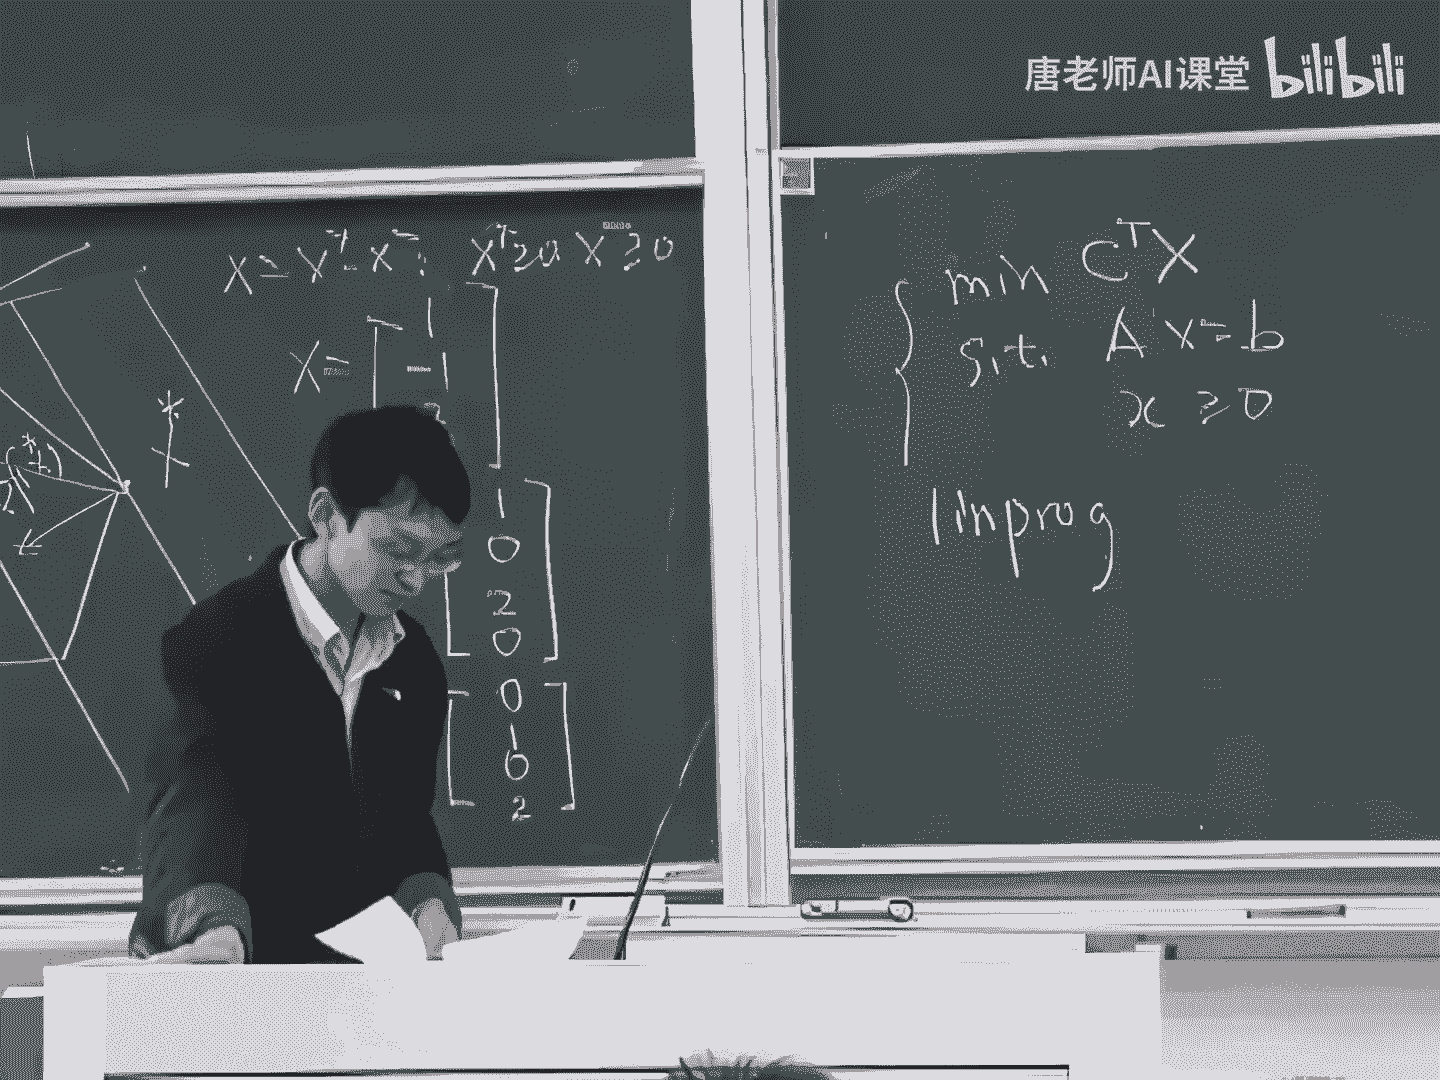 唐老师AI课堂 bilibili
X = X⁺ - X⁻ : X⁺ ≥ 0 X⁻ ≥ 0
X =
1
-1
2
1
0
2
0
0
1
0
2
X*
min CᵀX
s.t. A x = b
x ≥ 0
linprog